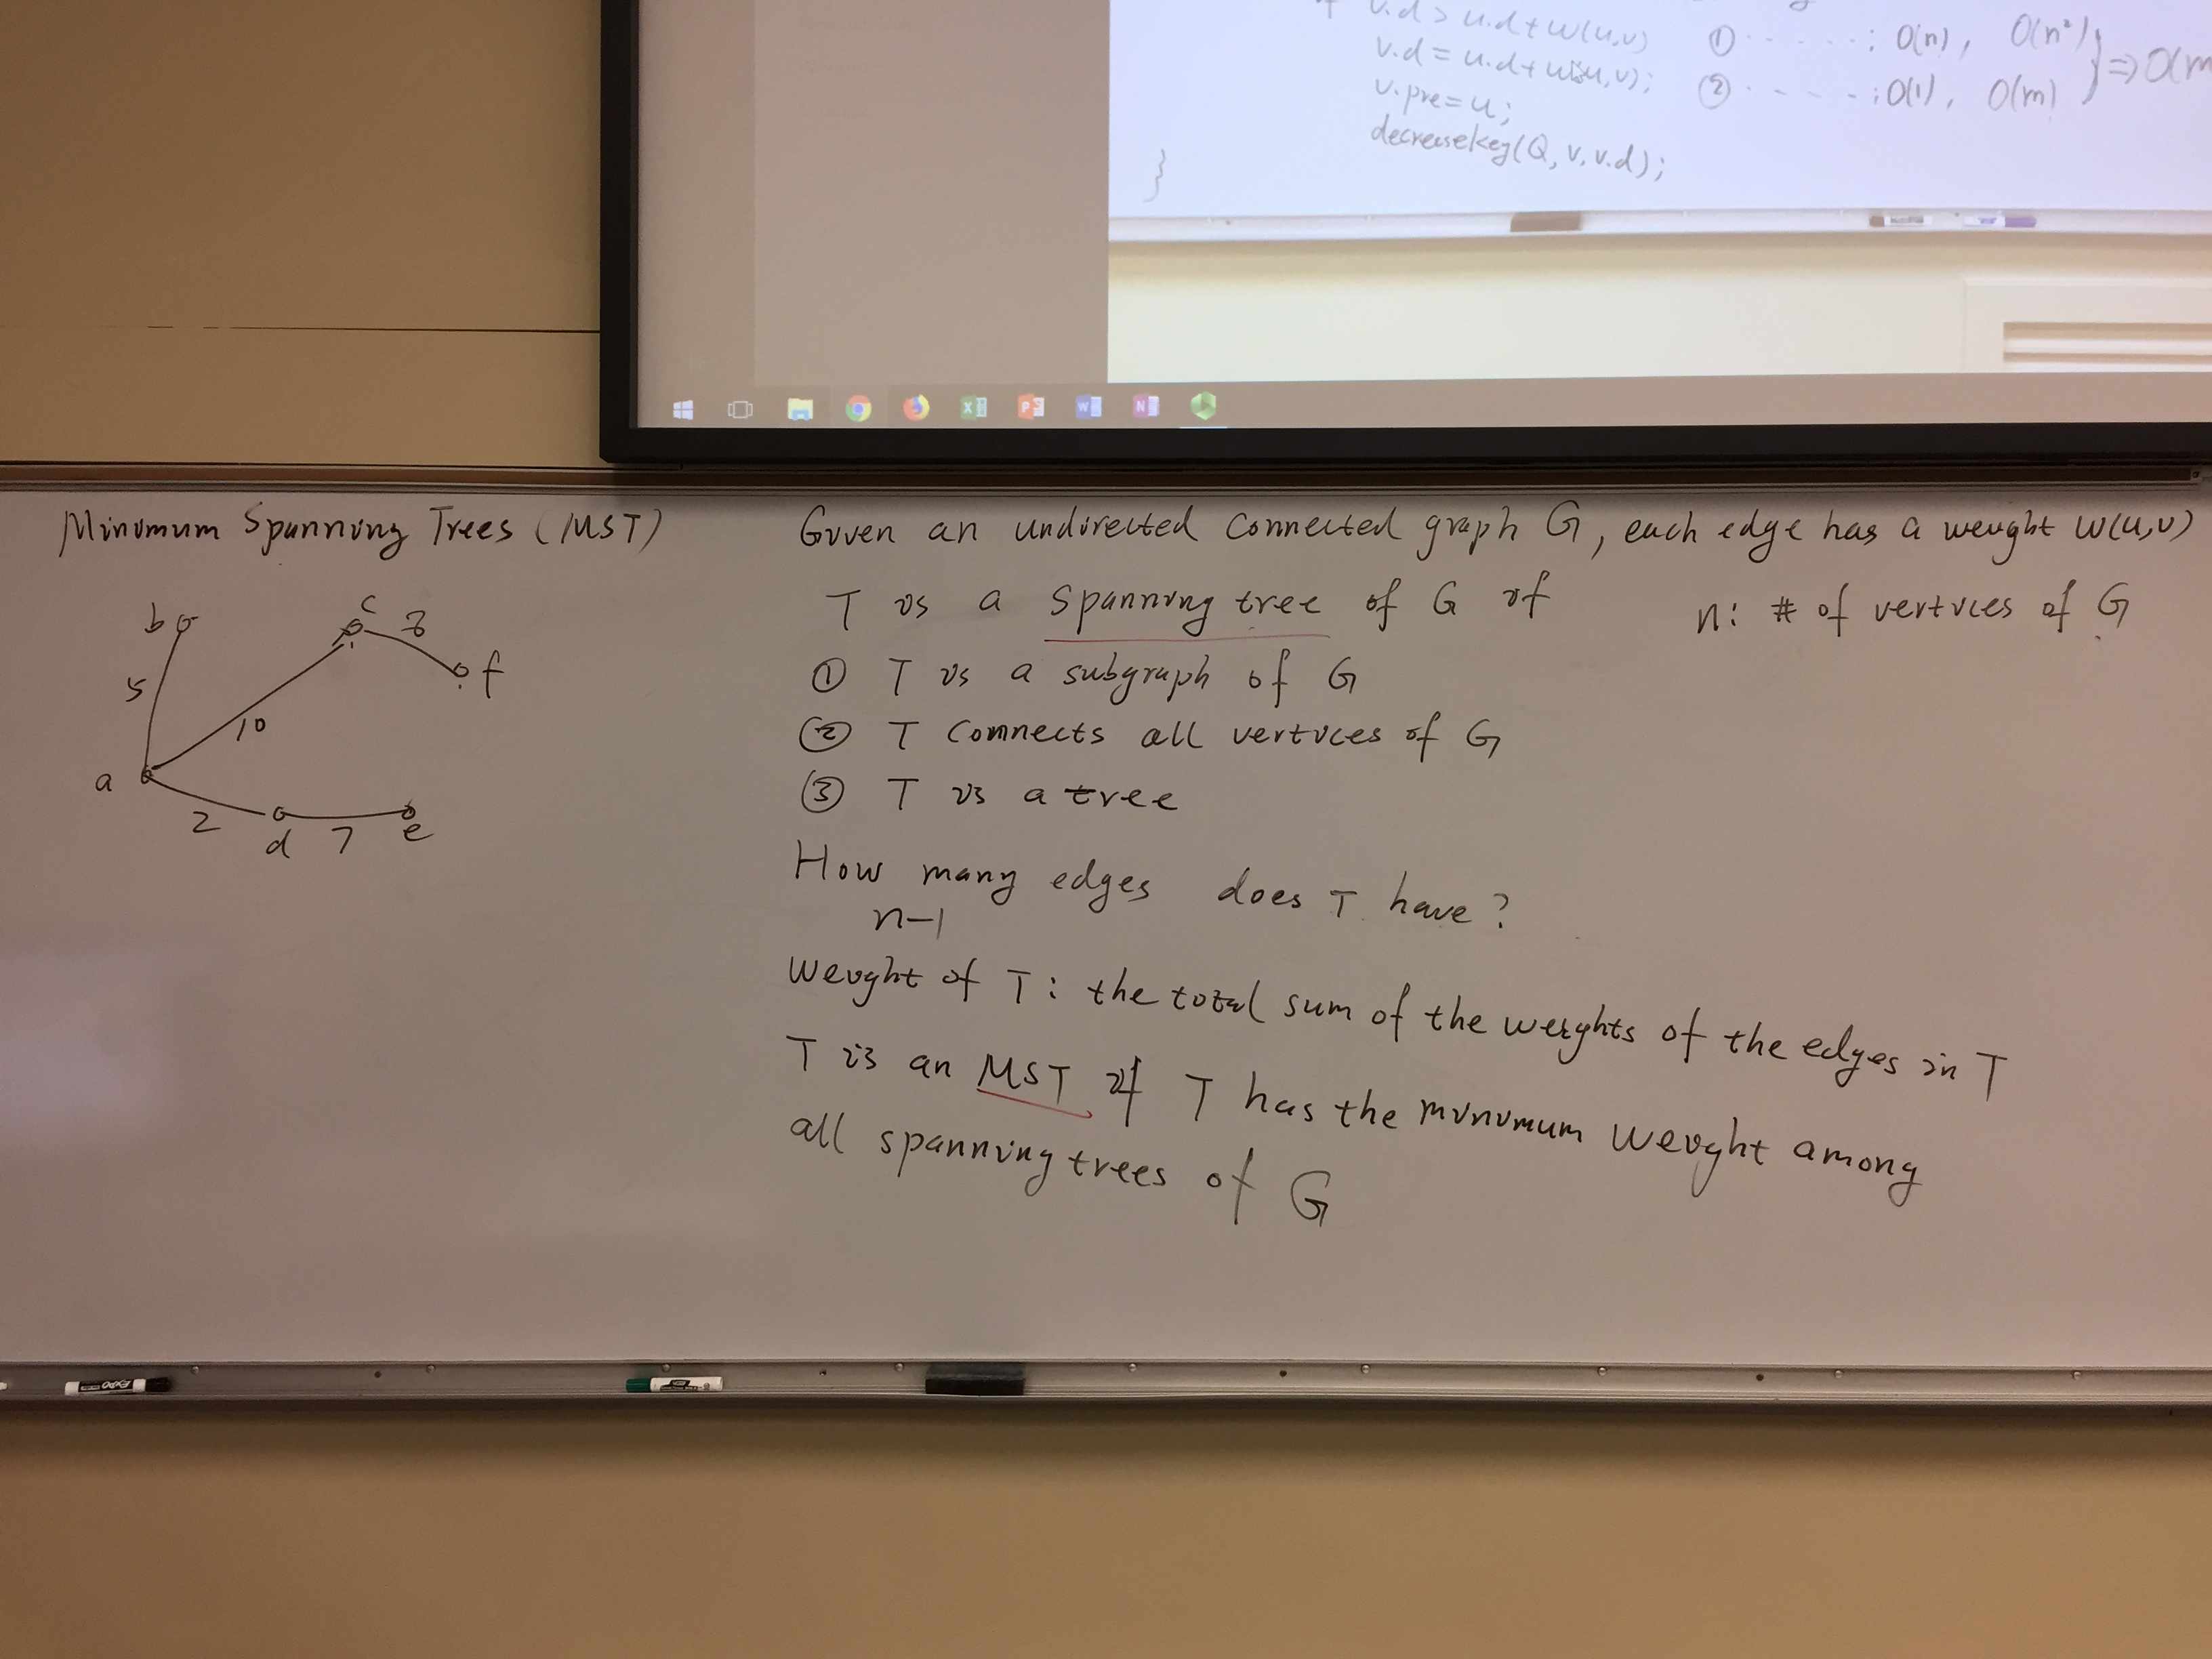 v.d > u.d + w(u,v) ① · · · · · ; O(n), O(n²)
v.d = u.d + w(u,v); ② · · · · · ; O(1), O(m) } ⇒ O(m
v.pre = u;
decreasekey(Q, v, v.d);
}
Minimum Spanning Trees (MST)
b
c
f
5
10
a
2
d
7
e
Given an undirected connected graph G, each edge has a weight w(u,v)
T is a spanning tree of G if
n: # of vertices of G
① T is a subgraph of G
② T connects all vertices of G
③ T is a tree
How many edges does T have?
n-1
Weight of T: the total sum of the weights of the edges in T
T is an MST if T has the minimum weight among
all spanning trees of G
EXPO